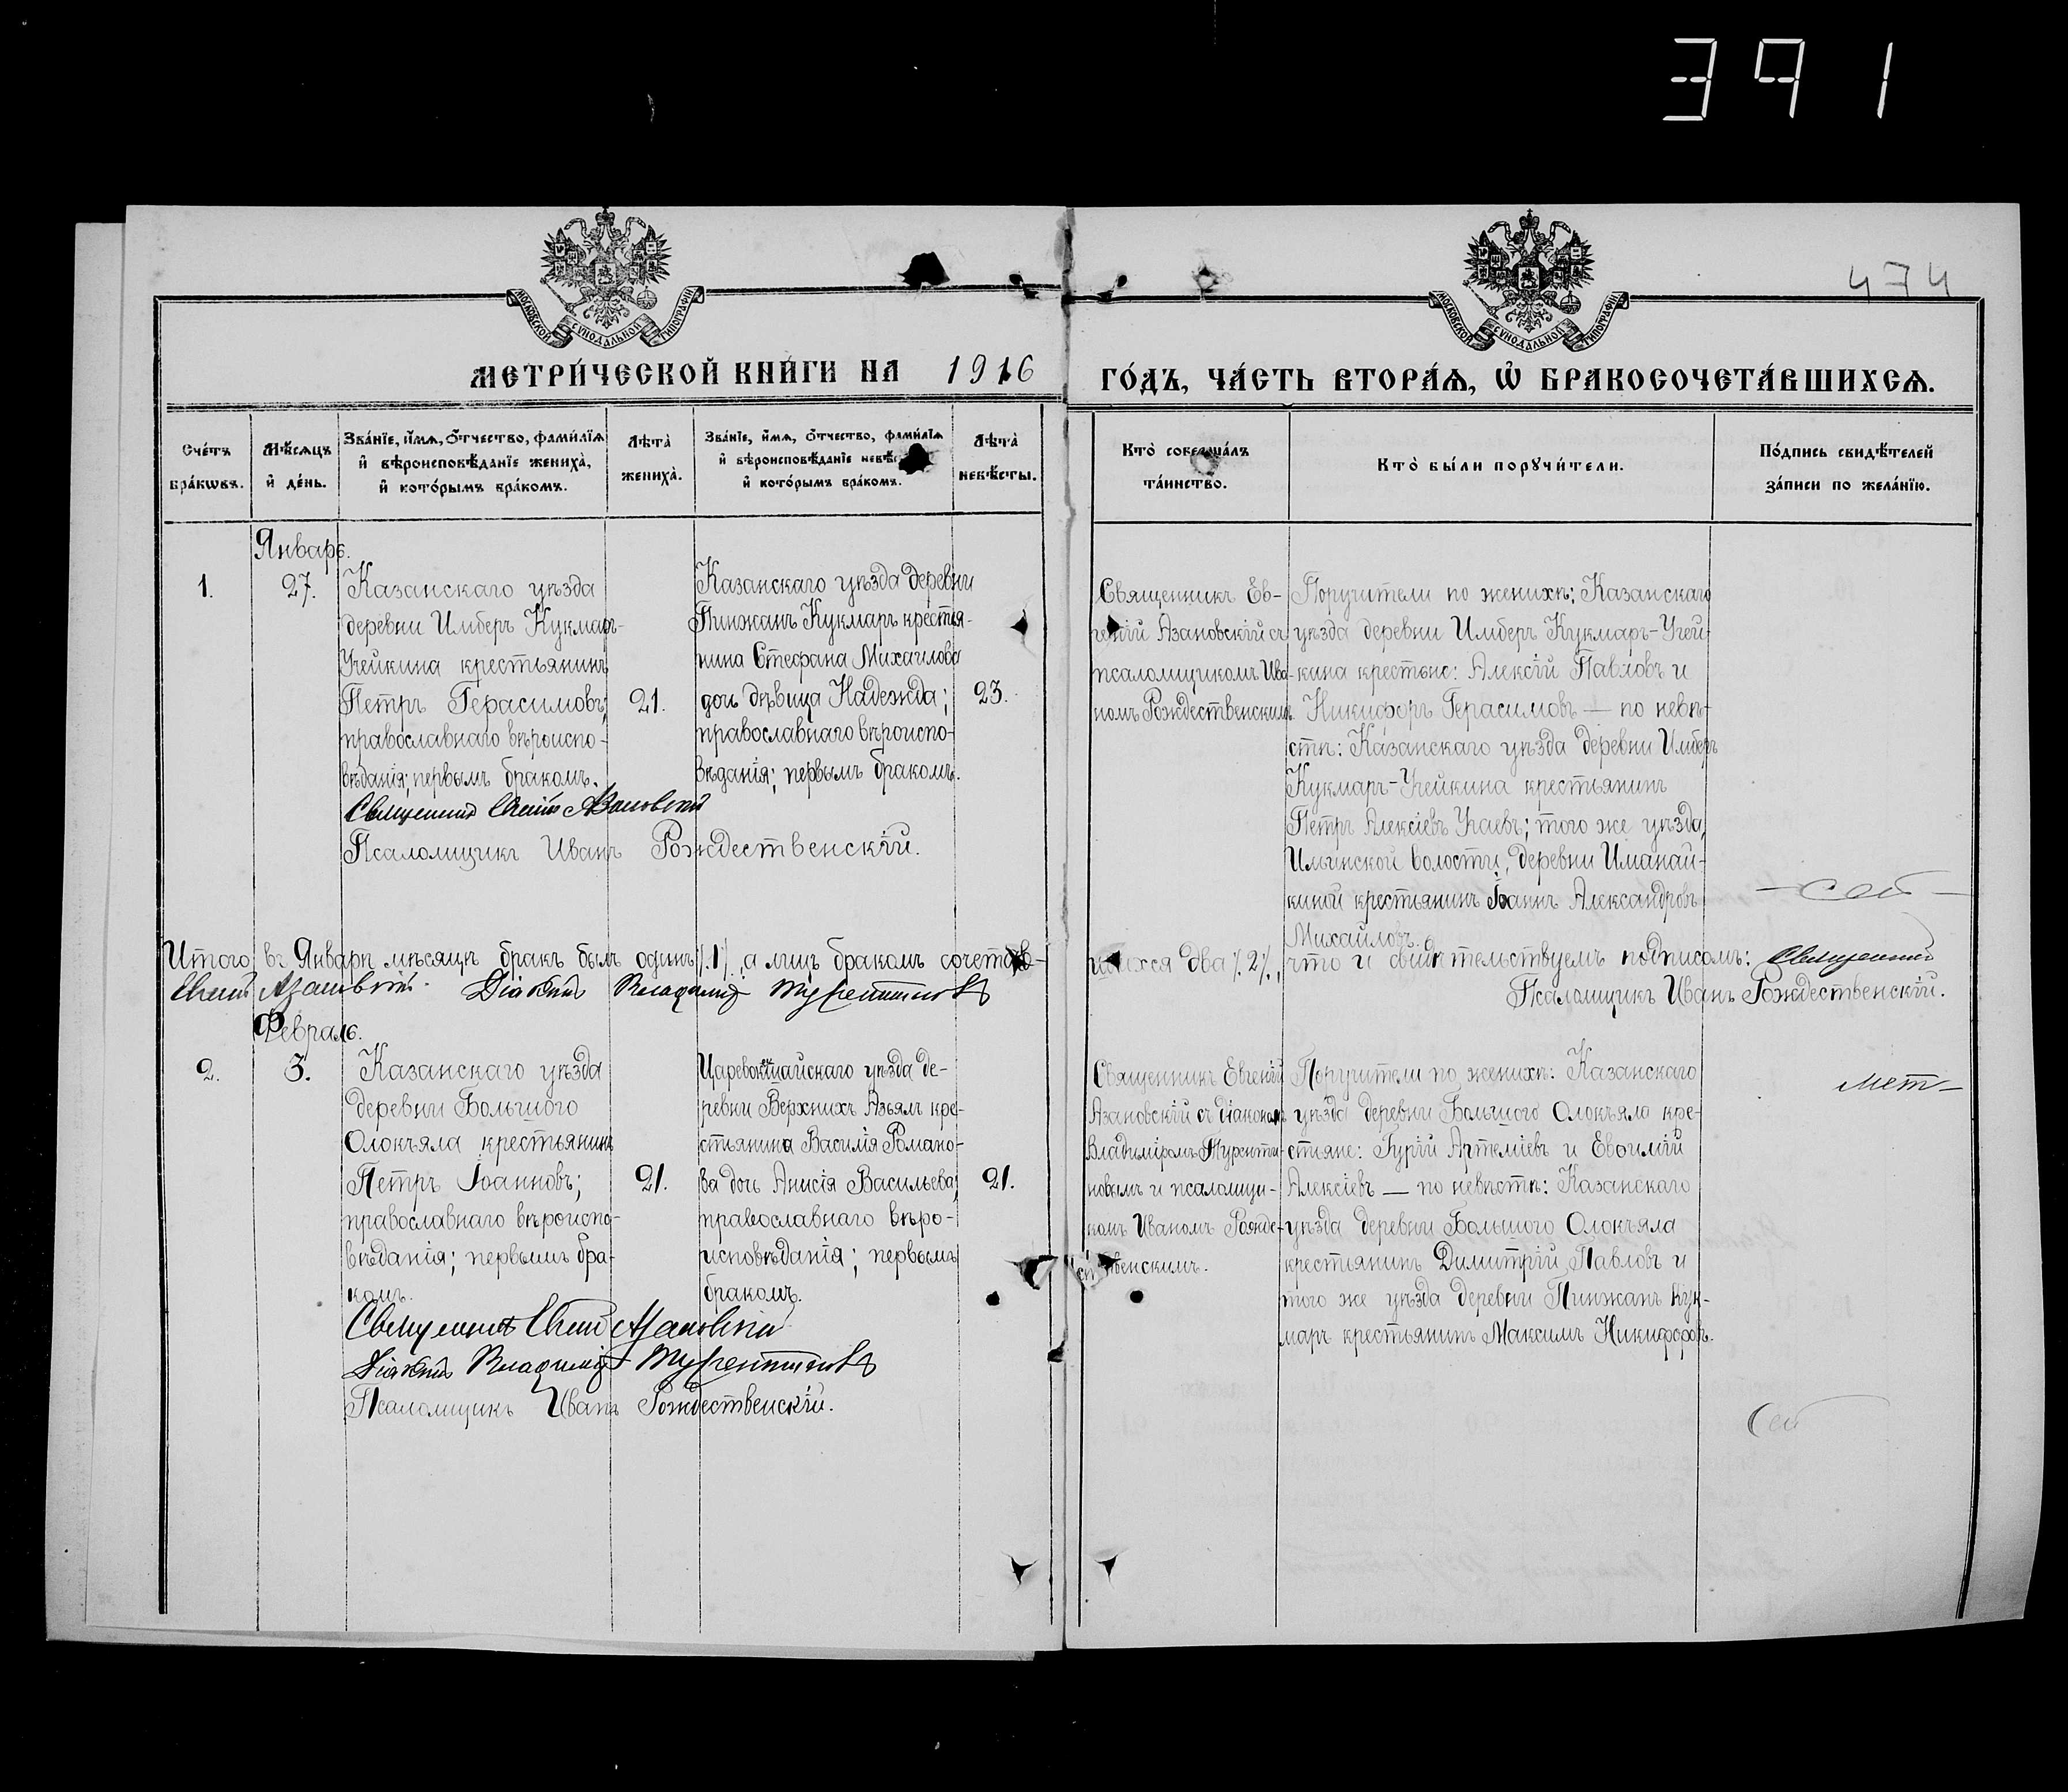 391
474
МОСКОВСКОЙ СѴНОДАЛЬНОЙ ТИПОГРАФІИ
МОСКОВСКОЙ СѴНОДАЛЬНОЙ ТИПОГРАФІИ
МЕТРИ́ЧЕСКОЙ КНИ́ГИ НА 1916
ГО́ДЪ, ЧА́СТЬ ВТОРА́Я, Ѡ҆ БРАКОСОЧЕТА́ВШИХСЯ.
Сче́тъ бра́кѡвъ.
Мѣ́сяцъ и҆ де́нь.
Зва́нїе, и҆́мя, ѻ҆́тчество, фами́лїя
и҆ вѣроисповѣ́данїе жениха̀,
и҆ кото́рымъ бра́комъ.
Лѣта̀ жениха̀.
Зва́нїе, и҆́мя, ѻ҆́тчество, фами́лїя
и҆ вѣроисповѣ́данїе невѣс
и҆ кото́рымъ бра́комъ.
Лѣта̀ невѣ́сты.
Кто̀ соверша́лъ
та́инство.
Кто̀ бы́ли порꙋчи́тели.
По́дпись свидѣ́телей
за́писи по жела́нїю.
Январь.
1.
27.
Казанскаго уѣзда
деревни Имберъ Кукмаръ-
Учейкина крестьянинъ
Петръ Герасимовъ;
православнаго вѣроиспо-
вѣданія; первымъ бракомъ.
21.
Казанскаго уѣзда деревни
Пинжанъ Кукмаръ крестья-
нина Стефана Михаилова
дочь дѣвица Надежда;
православнаго вѣроиспо-
вѣданія; первымъ бракомъ.
23.
Священникъ Ев-
геній Азановскій съ
псаломщикомъ Ива-
номъ Рождественскимъ
Поручители по женихѣ: Казанскаго
уѣзда деревни Имберъ Кукмаръ-Учей-
кина крестьяне: Алексій Павловъ и
Никифоръ Герасимовъ — по невѣ-
стѣ: Казанскаго уѣзда деревни Имберъ
Кукмаръ-Учейкина крестьянинъ
Петръ Алексіевъ Учаевъ; того же уѣзда,
волости, деревни Иманай-
киной крестьянинъ Іоаннъ Александровъ
Михайловъ.
Священникъ Евгеній Азановскій
Псаломщикъ Иванъ Рождественскій.
Итого въ Январѣ мѣсяцѣ бракъ былъ одинъ /.1/. а лицъ бракомъ сочетав-
шихся два /.2/., что и свидѣтельствуемъ подписомъ: Священникъ
Евгеній Азановскій. Діаконъ Владиміръ Турентиновъ
Псаломщикъ Иванъ Рождественскій.
Февраль.
2.
3.
Казанскаго уѣзда
деревни Большого
Олокъяла крестьянинъ
Петръ Іоанновъ;
православнаго вѣроиспо-
вѣданія; первымъ бра-
комъ.
21.
Царевококшайскаго уѣзда де-
ревни Верхнихъ Азьялъ кре-
стьянина Василія Романо-
ва дочь Анисія Васильева;
православнаго вѣро-
исповѣданія; первымъ
бракомъ.
21.
Священникъ Евгеній
Азановскій съ діакономъ
Владиміромъ Туренти-
новымъ и псаломщи-
комъ Иваномъ Рожде-
ственскимъ.
Поручители по женихѣ: Казанскаго
уѣзда деревни Большого Олокъяла кре-
стьяне: Гурій Артеміевъ и Евѳимій
Алексіевъ — по невѣстѣ: Казанскаго
уѣзда деревни Большого Олокъяла
крестьянинъ Димитрій Павловъ и
того же уѣзда деревни Пинжанъ Кук-
маръ крестьянинъ Максимъ Никифоровъ.
Священникъ Евгеній Азановскій
Діаконъ Владиміръ Турентиновъ
Псаломщикъ Иванъ Рождественскій.